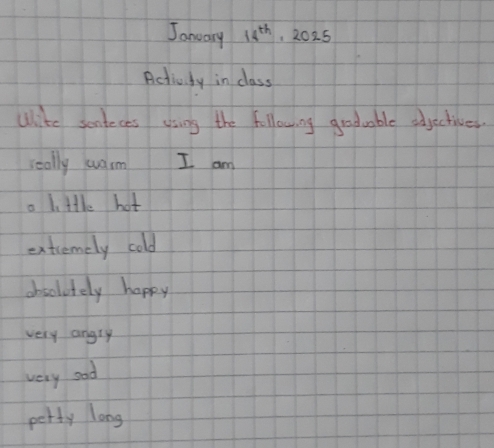 January 14th, 2025
Activity in class
Write senteces using the following graduable adjectives.
really warm I am
a little hot
extremely cold
absolutely happy
very angry
very sad
petty long